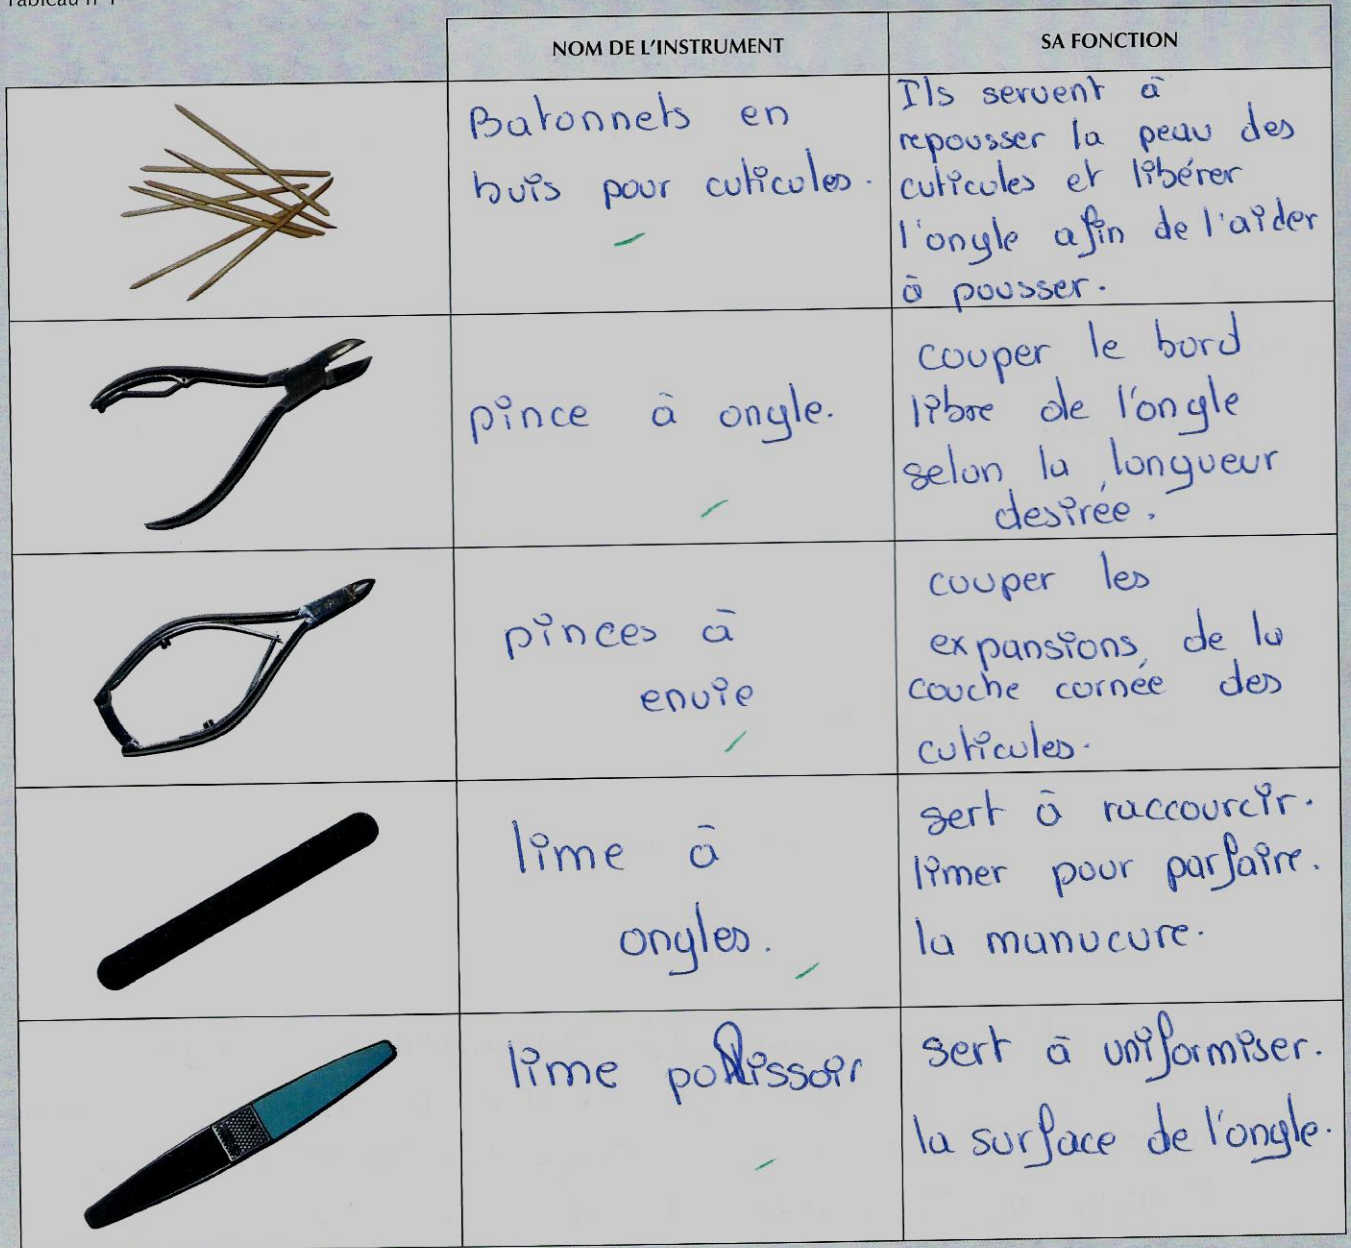 Tableau n°1
NOM DE L'INSTRUMENT
SA FONCTION
Batonnets en
buis pour cuticules.
Ils servent à
repousser la peau des
cuticules et libérer
l'ongle afin de l'aider
à pousser.
pince à ongle.
couper le bord
libre de l'ongle
selon la longueur
desirée.
pinces à
envie
couper les
expansions de la
couche cornée des
cuticules.
lime à
ongles.
sert à raccourcir.
limer pour parfaire.
la manucure.
lime polissoir
sert à uniformiser.
la surface de l'ongle.